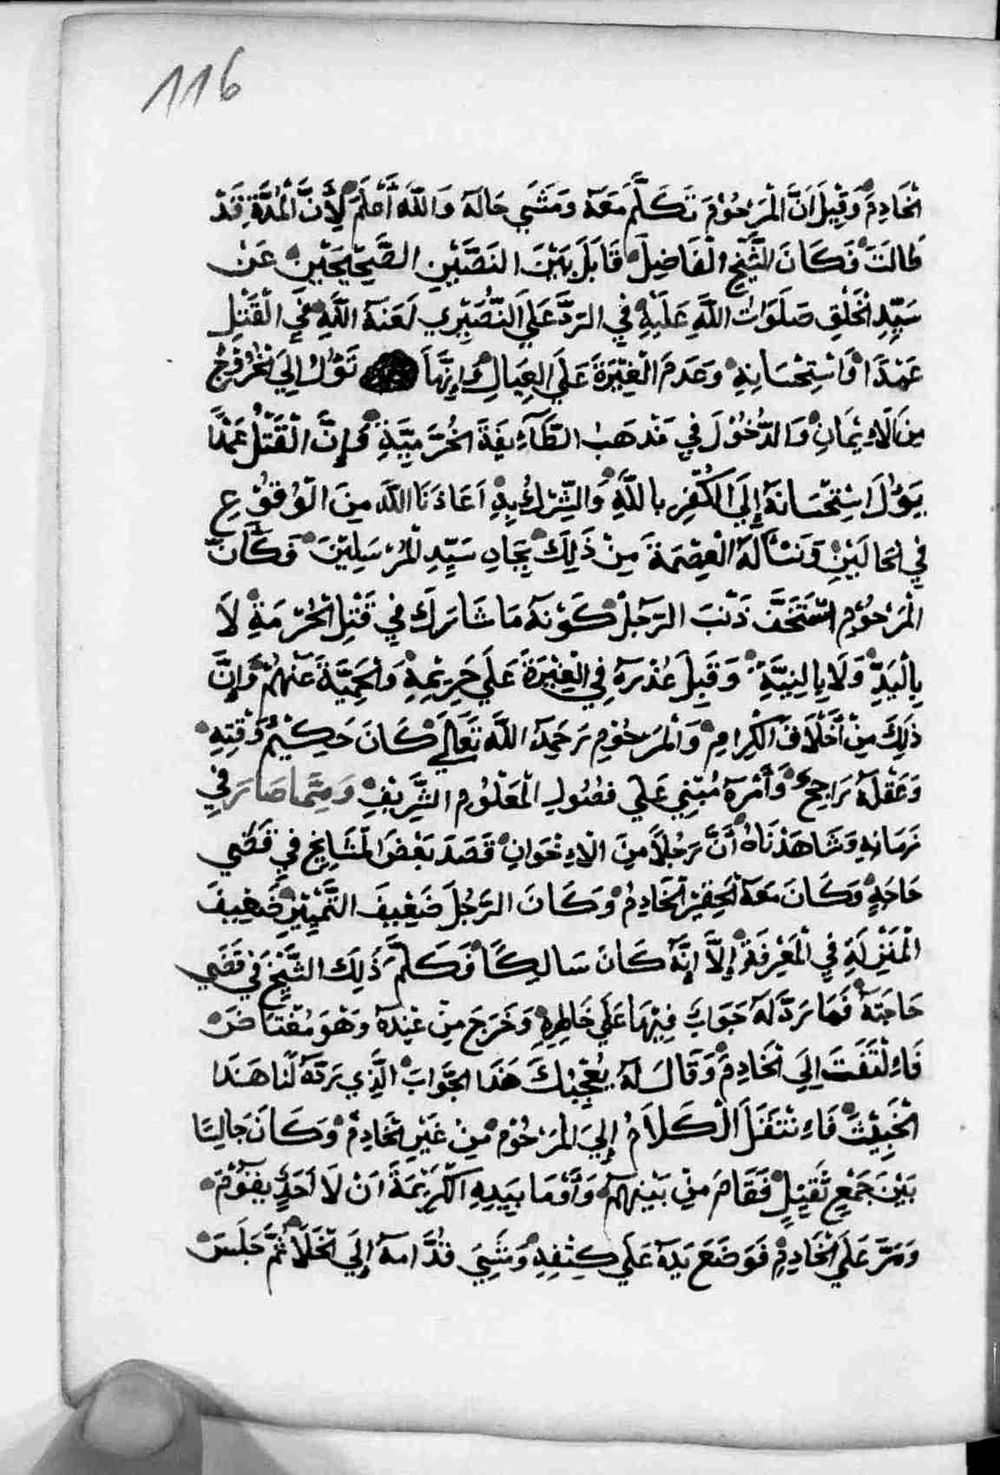 116
الْخَادِمَ وَقِيْلَ اَنَّ الْمَرْحُوْمَ تَكَلَّمَ مَعَهُ وَمَشَي حَالَهُ وَاللّٰهُ أَعْلَمُ لِأَنَّ الْمُدَّةَ قَدْ
طَالَتْ فَكَانَ الشَّيْخُ الْفَاضِلُ قَابَلَ بَيْنَ النَصَّيْنِ الصَّحِيْحَيْنِ عَنْ
سَيِّدِ الْخَلْقِ صَلَوَاتُ اللّٰهِ عَلَيْهِ فِي الرَدِّ عَلَي النُّصَيْرِي لَعَنَهُ اللّٰهِ فِي الْقَتْلِ
عَمْدًا وَاسْتِحْسَانِهِ وَعَدَمَ الْغَيْرَةَ عَلَي الْعِيَالِ وَإِنَّهَا تَؤُلُ اِلَي الْخُرُوْجِ
مِنَ الْاِيْمَانِ وَالدُّخُوْلَ فِي مَذْهَبِ الطَّآءِيفَةَ الْخُرَّمِيَّةِ وَإِنَّ الْقَتْلُ عَمْدًا
يَؤُلَ اسْتِحْسَانَهُ إِلَي الْكُفْرِ بِاللّٰهِ وَالشِّرْكُ بِهِ اَعَاذَنَا اللّٰهُ مِنَ الْوُقُوْعِ
فِي الْحَالَيْنِ وَنَسْأَلَهُ الْعِصْمَةَ مِنْ ذَلِكَ بِجَاهِ سَيِّدِ الْمُرْسَلِيْنَ فَكَانَ
الْمَرْحُوْمِ اسْتَخَفَّ ذَنْبَ الرَجُلْ كَوْنَهُ مَا شَارَكَ فِي قَتْلِ الْحُرْمَةِ لَا
بِالْيَدِّ وَلَا بِالنِيَّةِ وَقَبِلَ عُذْرَهُ فِي الْغَيْرَةَ عَلَي حَرِيْمِهِ وَالْحَمِيَّةَ عَنْهُمُ وَإِنَّ
ذَلِكَ مِنْ أَخْلَاقِ الْكِرَامِ وَالْمَرْحُوْمِ رَحِمَهُ اللّٰهُ تَعَالَي كَانَ حَكِيْمُ وَقْتِهِ
وَعَقْلَهُ رَاجِحٌ وَأَمْرَهُ مُبْنِي عَلَي فصُولِ الْمَعْلُوْمِ الشَّرِيْفِ وَمِمَّا صَارَ فِي
زَمَانِهِ وَشَاهَدْنَاهُ أَنَّ رَجُلًا مِنَ الْاِخْوَانِ قَصَدَ بَعْضَ الْمَشَايِخِ فِي قَضَي
حَاجَةٍ وَكَانَ مَعَهُ الْحَقِيْرْ الْخَادِمُ وَكَانَ الرَّجُلَ ضَعِيفَ التَّمْيِيْزِ ضَعِيفَ
الْمَنْزِلَةِ فِي الْمَعْرِفَةِ إِلَّا إِنَّهُ كَانَ سَالِكًا فَكَلَّمَ ذَلِكَ الشَّيْخَ فِي قَضَي
حَاجَتَهُ فَمَا رَدَّ لَهُ جَوَابَ فِيْهَا عَلَي خَاطِرِهِ وَخَرَجَ مِنْ عِنْدَهُ وَهْوَ مُغْتَاضْ
فَاءِلْتَفَتَ إِلَي الْخَادِمَ وَقَالَ لَهُ يُعْجِبْكَ هَذَا الْجَوَابَ الَّذِي رَدَّهُ لَنَا هَذَا
الْخَبِيْثَ فَاءِنْتَقَلَ الْكَلَامُ إِلَي الْمَرْحُوْمِ مِنْ غَيْرِ الْخَادِمْ وَكَانَ جَالِسًا
بَيْنَ جَمْعٍ ثَقِيْلٍ فَقَامَ مِنْ بَيْنِهِمْ وَأَوْمَا بِيَدِهِ الْكَرِيْمَةَ اَنْ لَا اَحَدٍ يَقُوْمُ
وَمَرَّ عَلَي الْخَادِمْ فَوَضَعَ يَدَهُ عَلَي كِتْفِهِ وَمَشِيَ قُدَّامهُ إِلَي الْخَلَا ثُمَّ جَلَسَ